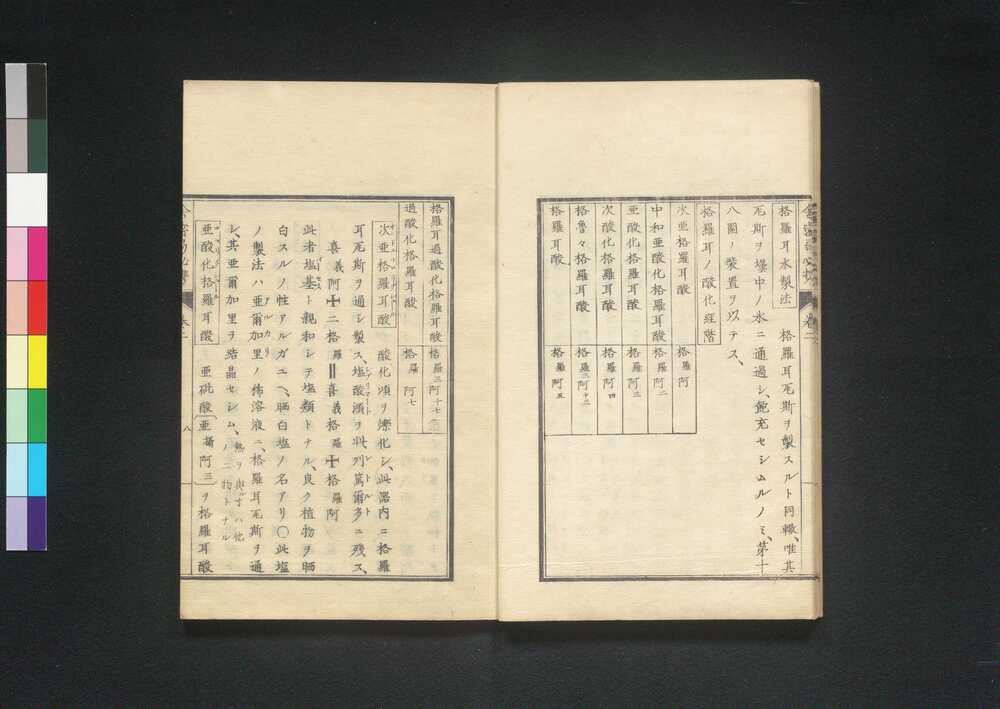 格羅耳水製法　格羅耳瓦斯ヲ製スルト同轍、唯其
瓦斯ヲ壜中ノ水ニ通過シ、飽充セシムルノミ、第十
八圖ノ裝置ヲ以テス、
格羅耳ノ酸化経階
次亜格羅耳酸　格羅阿
中和亜酸酸化格羅耳酸　格羅阿二
亜酸化格羅耳酸　格羅阿三
次酸化格羅耳酸　格羅阿四
格魯々格羅耳酸　格羅三阿十三
格羅耳酸　格羅阿五
格羅耳過酸化格羅耳酸　格羅三阿十七
過酸化格羅耳酸　格羅阿七
次亜格羅耳酸　酸化汞ヲ爍化シ、此器内ニ格羅
耳瓦斯ヲ通シ製ス、塩酸汞ヲ列篤爾多ニ残ス、
喜義阿十二格羅＝喜義格羅十格羅阿
此者塩基ト親和シテ塩類トナル、良ク植物ヲ晒
白スルノ性アルガユヘ、晒白塩ノ名アリ〇此塩
ノ製法ハ亜爾加里ノ稀溶液ニ、格羅耳瓦斯ヲ通
シ、其亜爾加里ヲ結晶セシム、熱ヲ與フレハ他ノ二物トナル
亜酸化格羅耳酸　亜硫酸（亜攝阿三）ヲ格羅耳酸
巻二
八